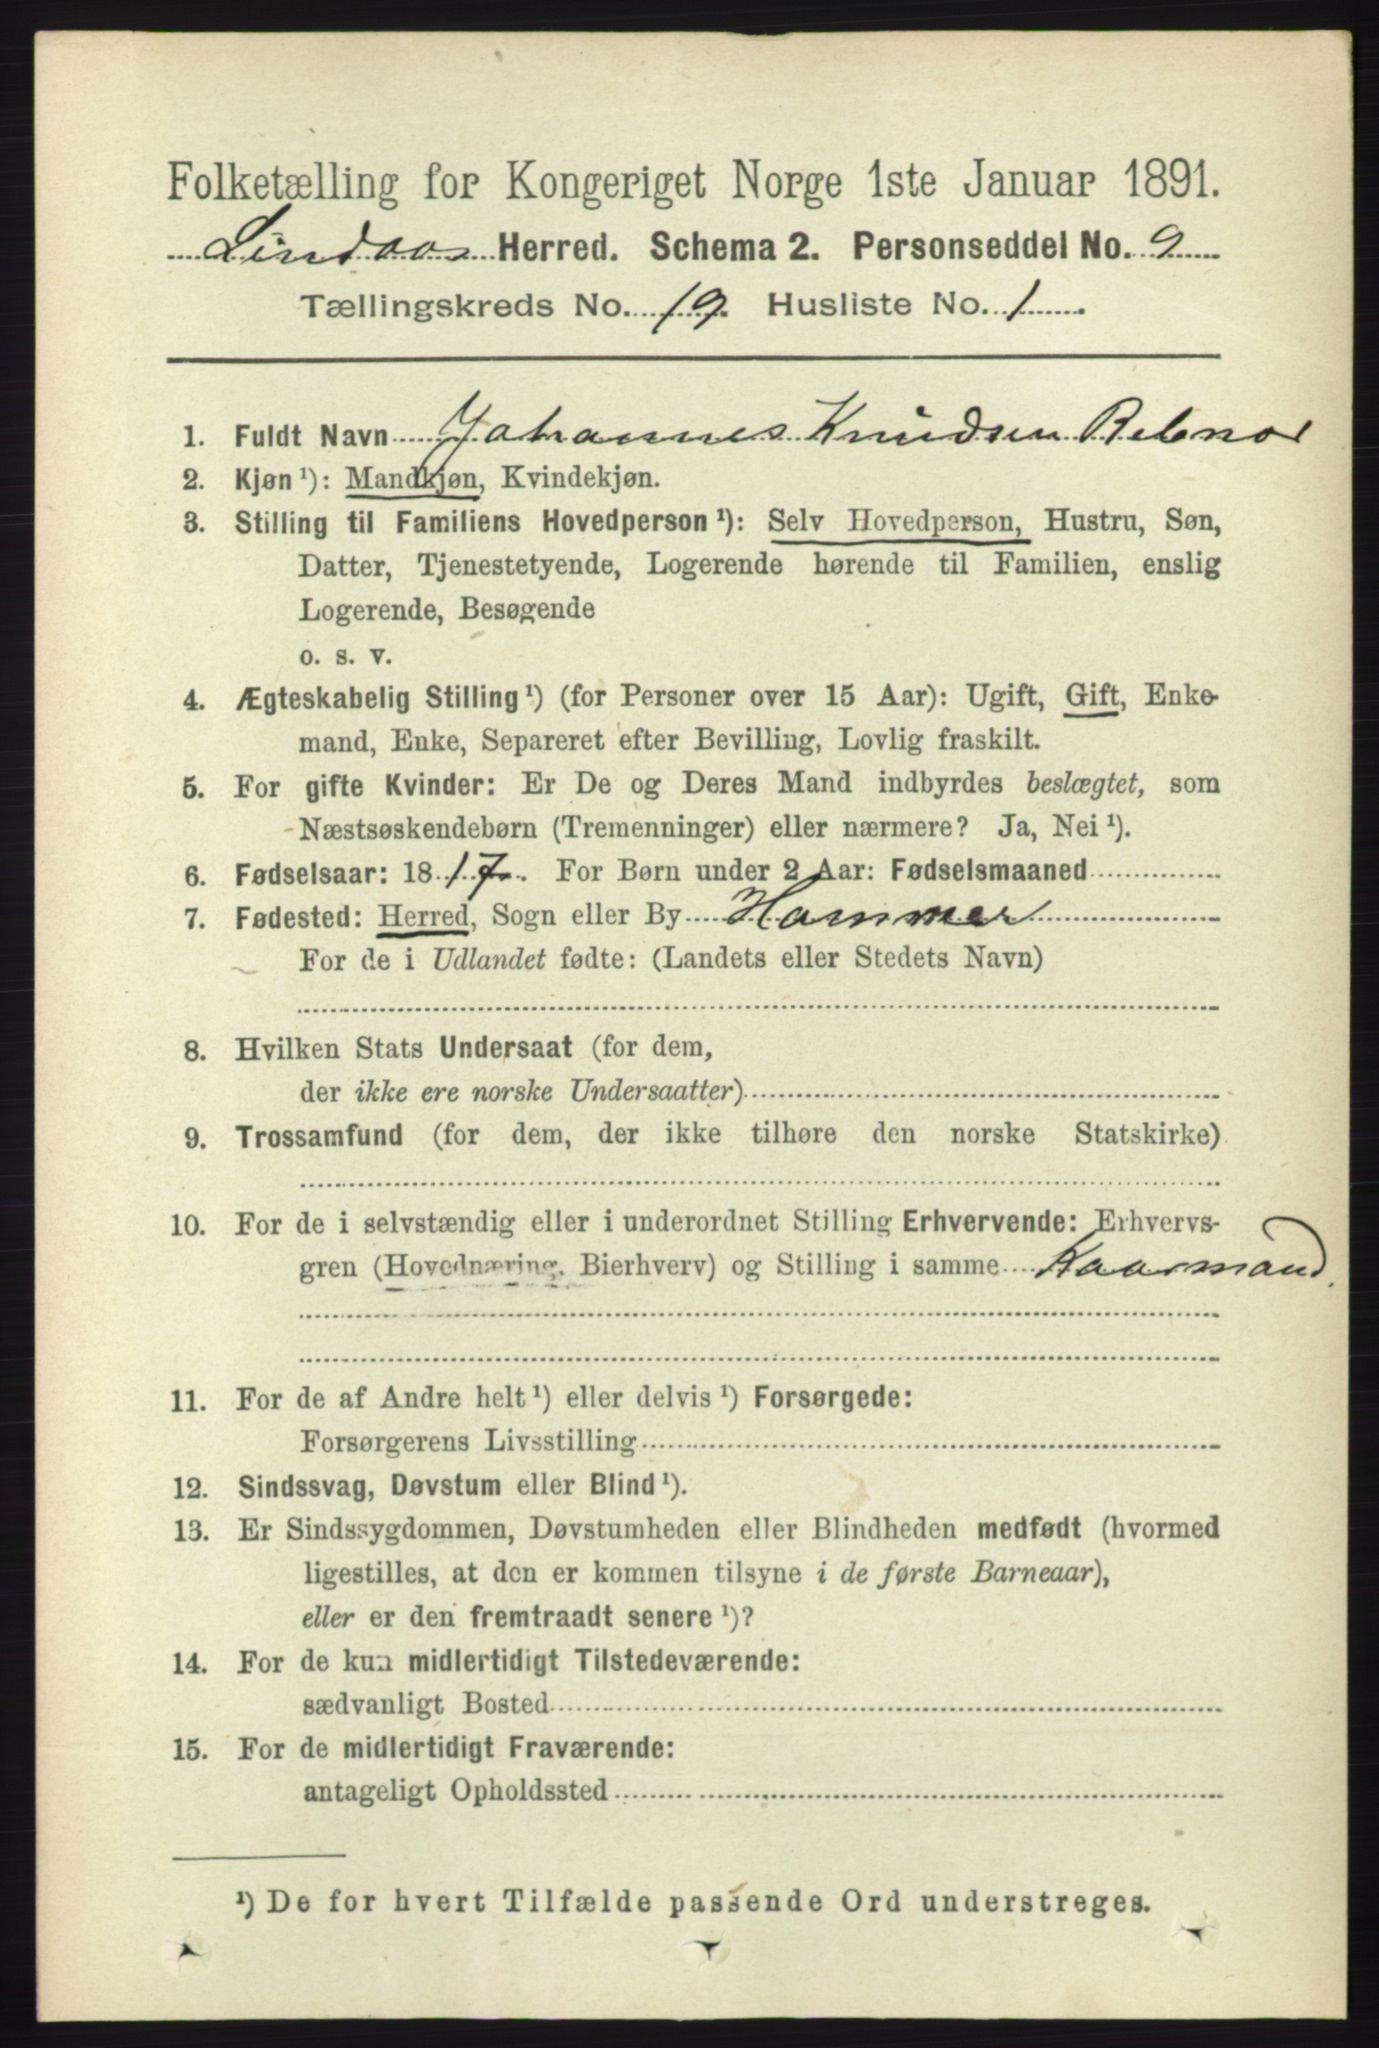 Folketælling for Kongeriget Norge 1ste Januar 1891.
Lindaas Herred. Schema 2. Personseddel No. 9
Tællingskreds No. 19. Husliste No. 1
1. Fuldt Navn Johannes Knudsen Rebnor
2. Kjøn ¹): Mandkjøn, Kvindekjøn.
3. Stilling til Familiens Hovedperson ¹): Selv Hovedperson, Hustru, Søn,
Datter, Tjenestetyende, Logerende hørende til Familien, enslig
Logerende, Besøgende
o. s. v.
4. Ægteskabelig Stilling ¹) (for Personer over 15 Aar): Ugift, Gift, Enke-
mand, Enke, Separeret efter Bevilling, Lovlig fraskilt.
5. For gifte Kvinder: Er De og Deres Mand indbyrdes beslægtet, som
Næstsøskendebørn (Tremenninger) eller nærmere? Ja, Nei ¹).
6. Fødselsaar: 1817. For Børn under 2 Aar: Fødselsmaaned
7. Fødested: Herred, Sogn eller By Hammer
For de i Udlandet fødte: (Landets eller Stedets Navn)
8. Hvilken Stats Undersaat (for dem,
der ikke ere norske Undersaatter)
9. Trossamfund (for dem, der ikke tilhøre den norske Statskirke)
10. For de i selvstændig eller i underordnet Stilling Erhvervende: Erhvervs-
gren (Hovednæring, Bierhverv) og Stilling i samme Kaarmand.
11. For de af Andre helt ¹) eller delvis ¹) Forsørgede:
Forsørgerens Livsstilling
12. Sindssvag, Døvstum eller Blind ¹).
13. Er Sindssygdommen, Døvstumheden eller Blindheden medfødt (hvormed
ligestilles, at den er kommen tilsyne i de første Barneaar),
eller er den fremtraadt senere ¹)?
14. For de kun midlertidigt Tilstedeværende:
sædvanligt Bosted
15. For de midlertidigt Fraværende:
antageligt Opholdssted
¹) De for hvert Tilfælde passende Ord understreges.